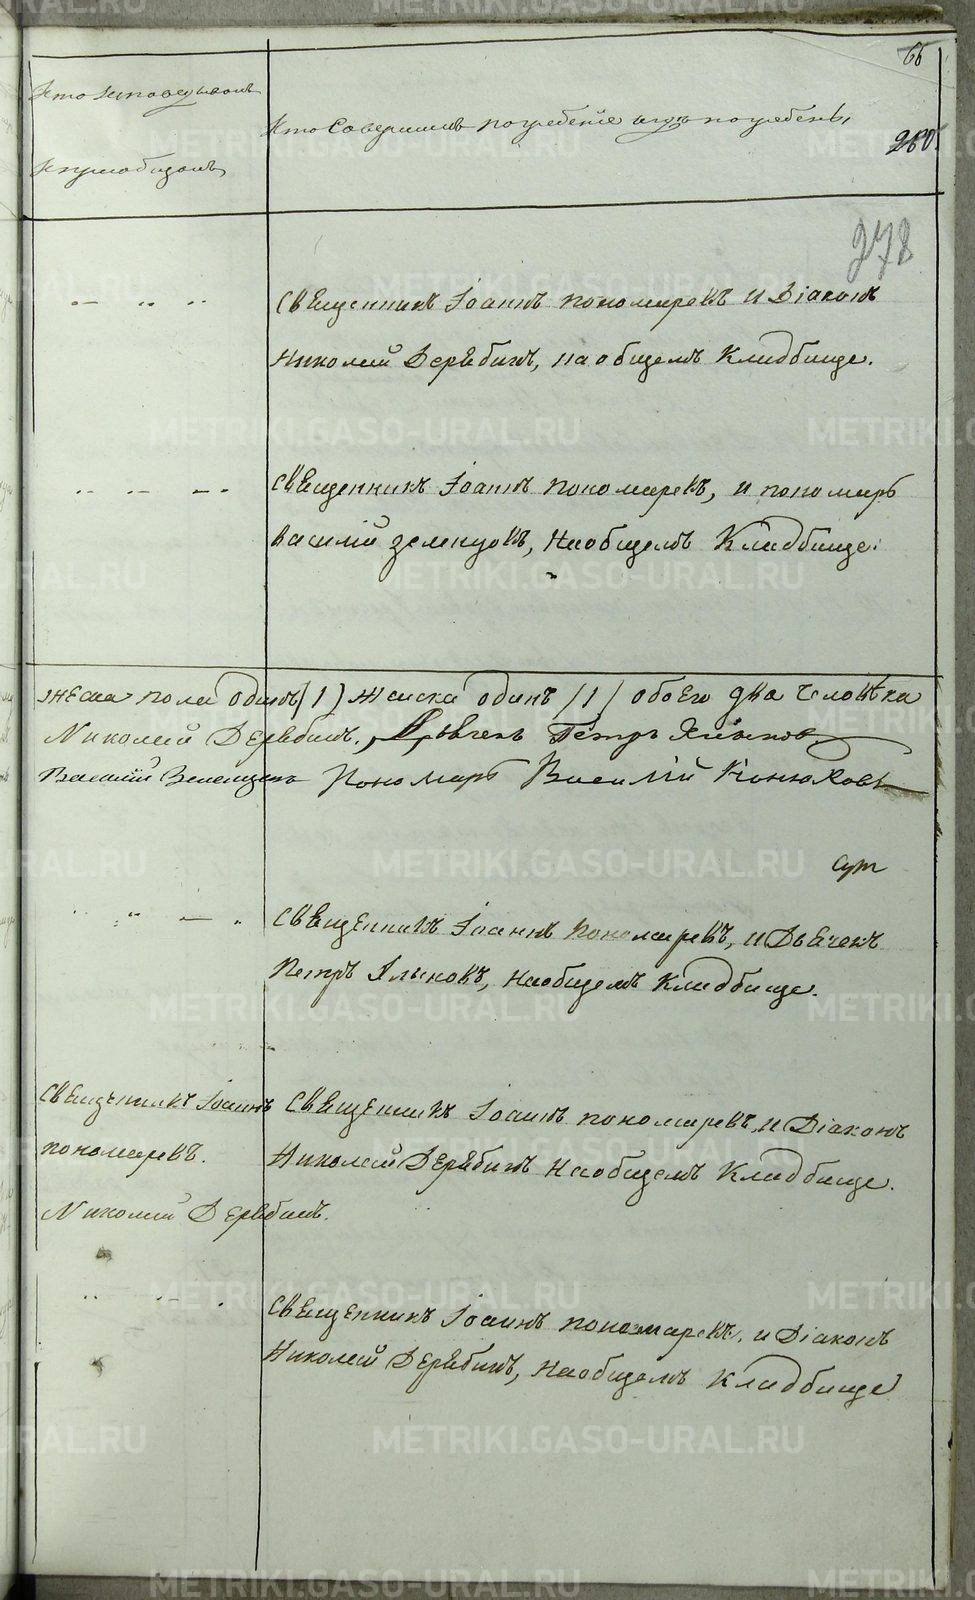 66
Кто исповедывалъ
и приобщалъ
Кто Совершилъ погребенїе и гдѣ погребены,
260.
278
Священникъ Іоаннъ пономаревъ и Дїаконъ
Николай Дерябинъ, на общемъ Кладбище.
Священникъ Іоаннъ пономаревъ, и пономарь
василїй зеленцовъ, На общемъ Кладбище.
женска пола одинъ (1) обоего два человѣка
Николай Дерябинъ. Дьячекъ Петръ
Василїй Зеленцовъ Пономарь Василїй Конюховъ
Священникъ Іоаннъ пономаревъ, и Дьячекъ
Петръ На общемъ Кладбище.
Священникъ Іоаннъ
пономаревъ.
Священникъ Іоаннъ пономаревъ, и Дїаконъ
Николай Дерябинъ На общемъ Кладбище.
Николай Дерябинъ.
Священникъ Іоаннъ пономаревъ. и Дїаконъ
Николай Дерябинъ, На общемъ Кладбище
METRIKI.GASO-URAL.RU